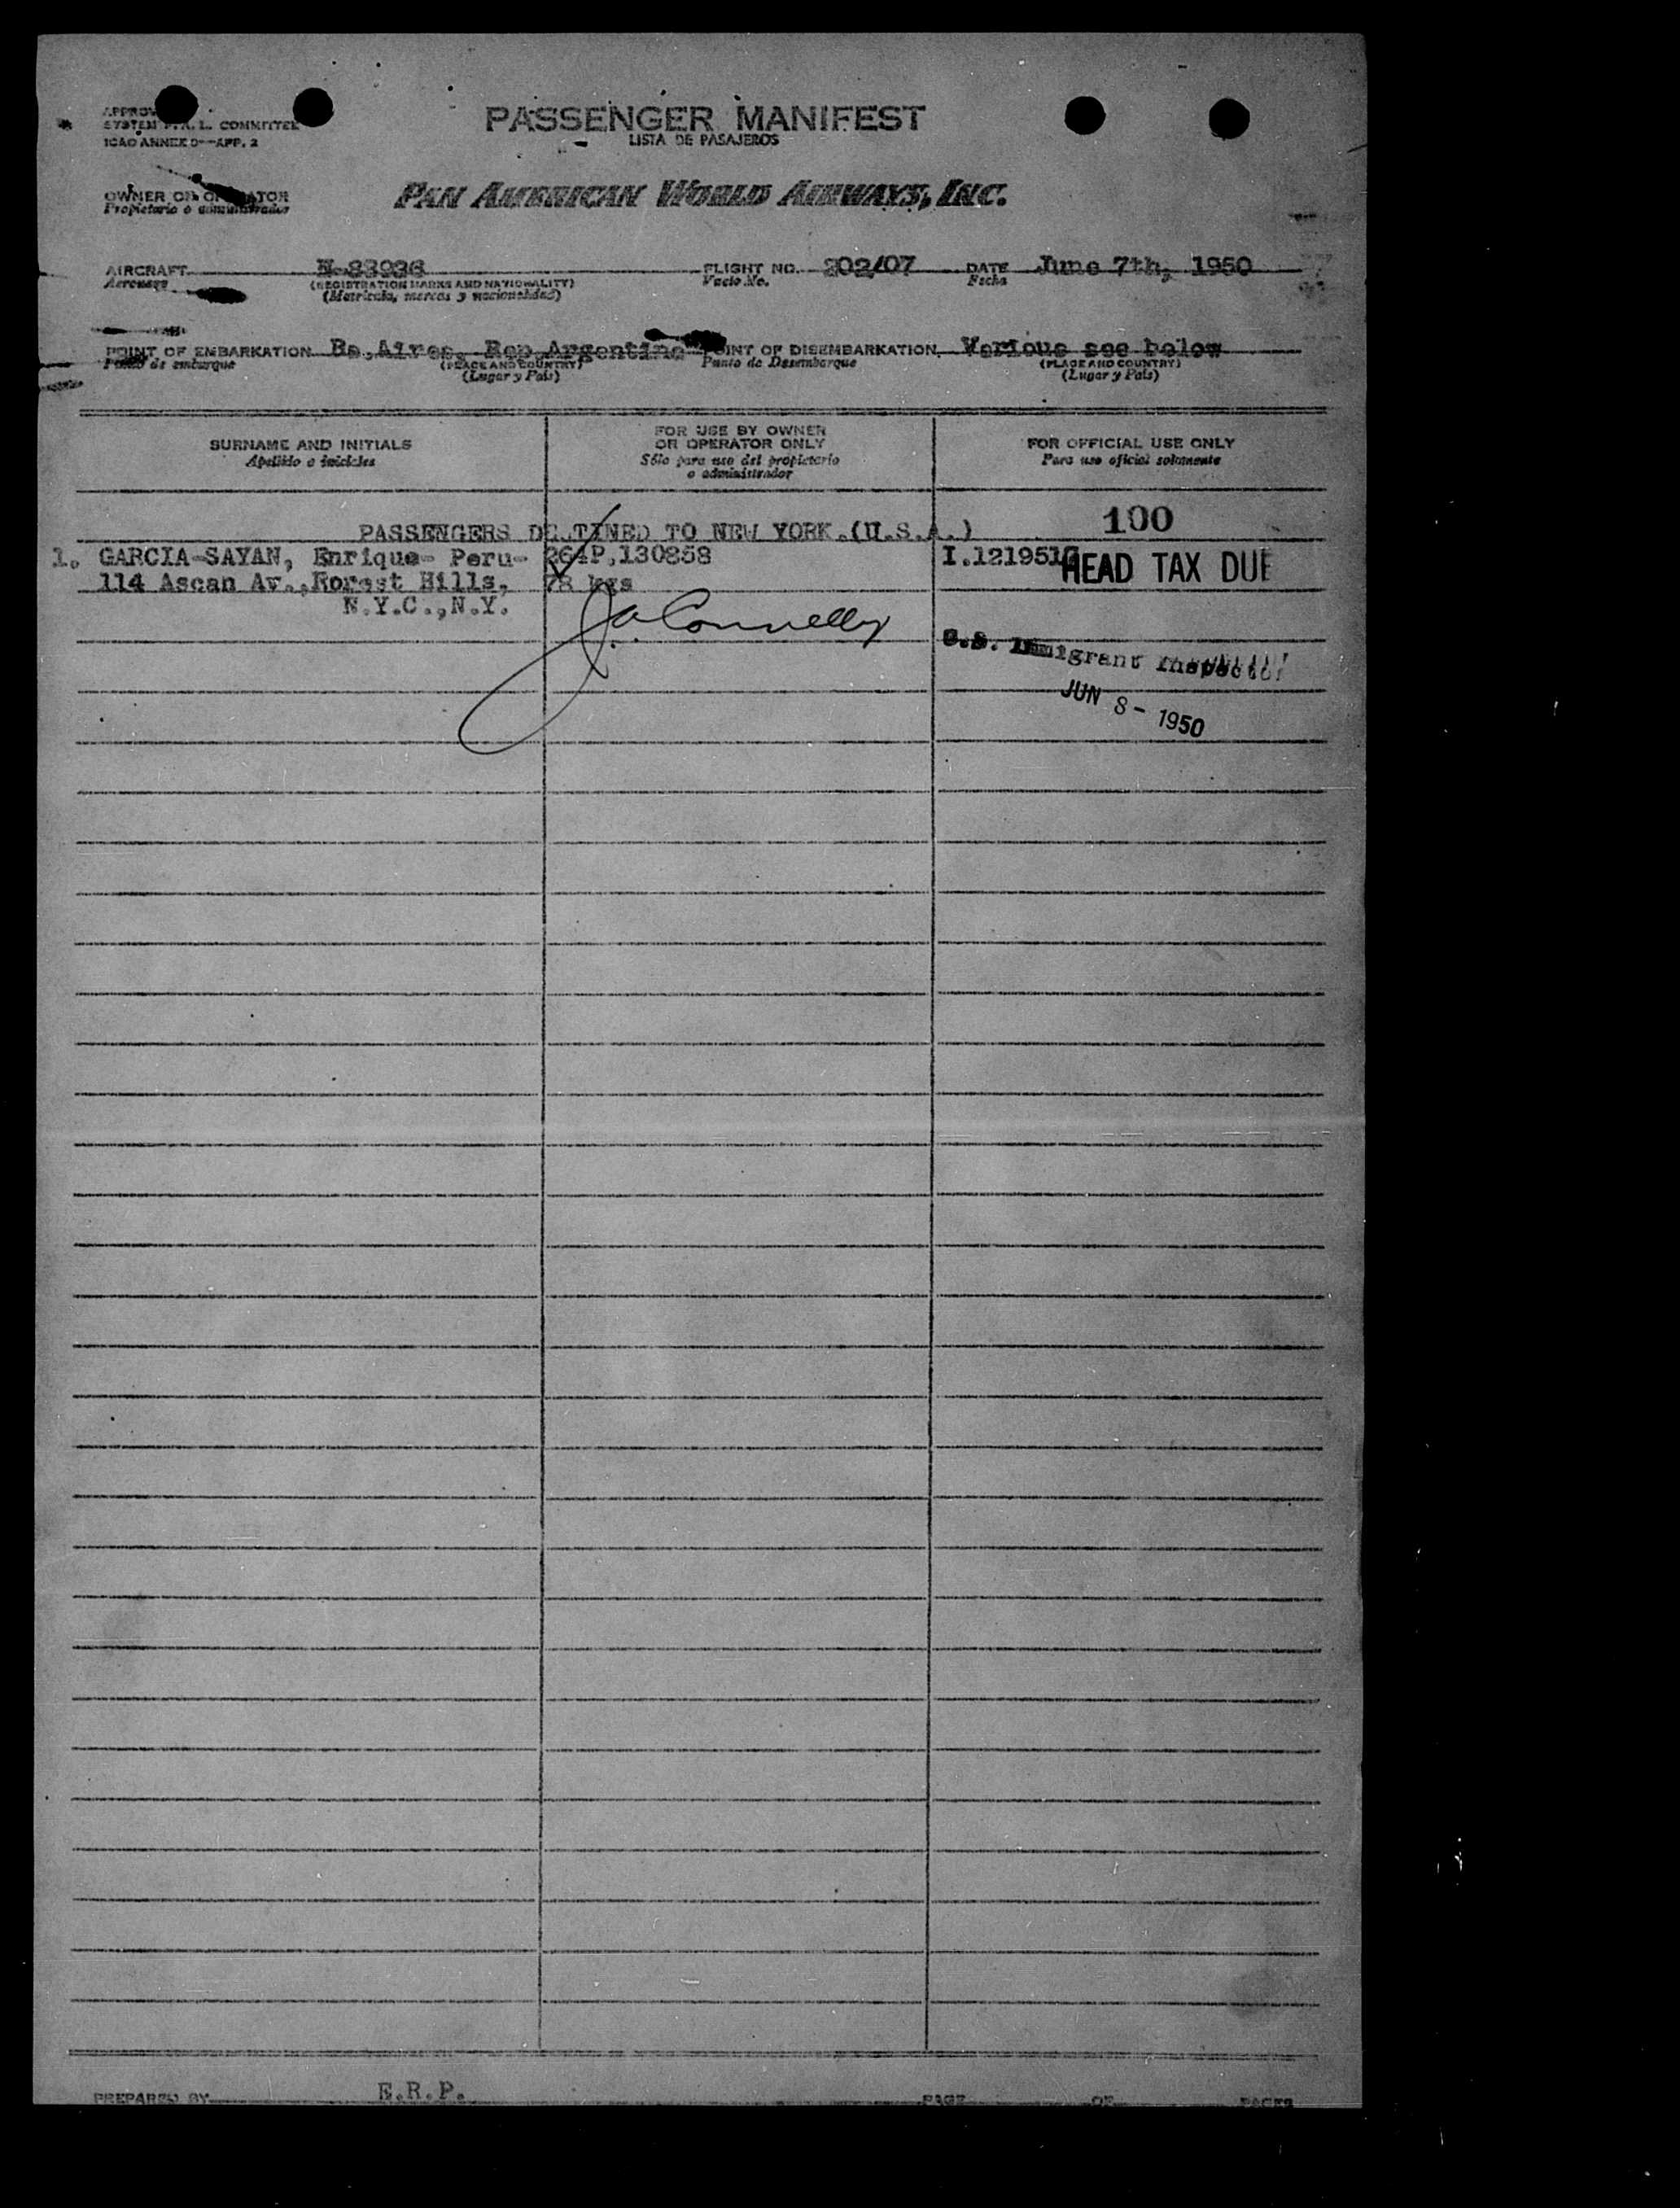 SYSTEM F.A.L. COMMITTEE
ICAO ANNEX 9—APP. 2
PASSENGER MANIFEST
LISTA DE PASAJEROS
OWNER OR OPERATOR
Propietario o administrador
PAN AMERICAN WORLD AIRWAYS, INC.
AIRCRAFT N-88936 FLIGHT NO. 202/07 DATE June 7th, 1950
Aeronave (REGISTRATION MARKS AND NATIONALITY) Vuelo No. Fecha
(Matricula, marcas y nacionalidad)
POINT OF EMBARKATION Bs.Aires, Rep.Argentina POINT OF DISEMBARKATION Various see below
Punto de embarque (PLACE AND COUNTRY) Punto de Desembarque (PLACE AND COUNTRY)
(Lugar y País) (Lugar y País)
SURNAME AND INITIALS
Apellido e iniciales
FOR USE BY OWNER
OR OPERATOR ONLY
Sólo para uso del propietario
o administrador
FOR OFFICIAL USE ONLY
Para uso oficial solamente
PASSENGERS DESTINED TO NEW YORK.(U.S.A.) 100
1. GARCIA-SAYAN, Enrique- Peru- 264P.130858 HEAD TAX DUE
114 Ascan Av.,Forest Hills, 78 kgs
N.Y.C.,N.Y.
J.A. Connelly
U.S. Immigrant Inspector
JUN 8 - 1950
PREPARED BY E.R.P. PAGE OF PAGES